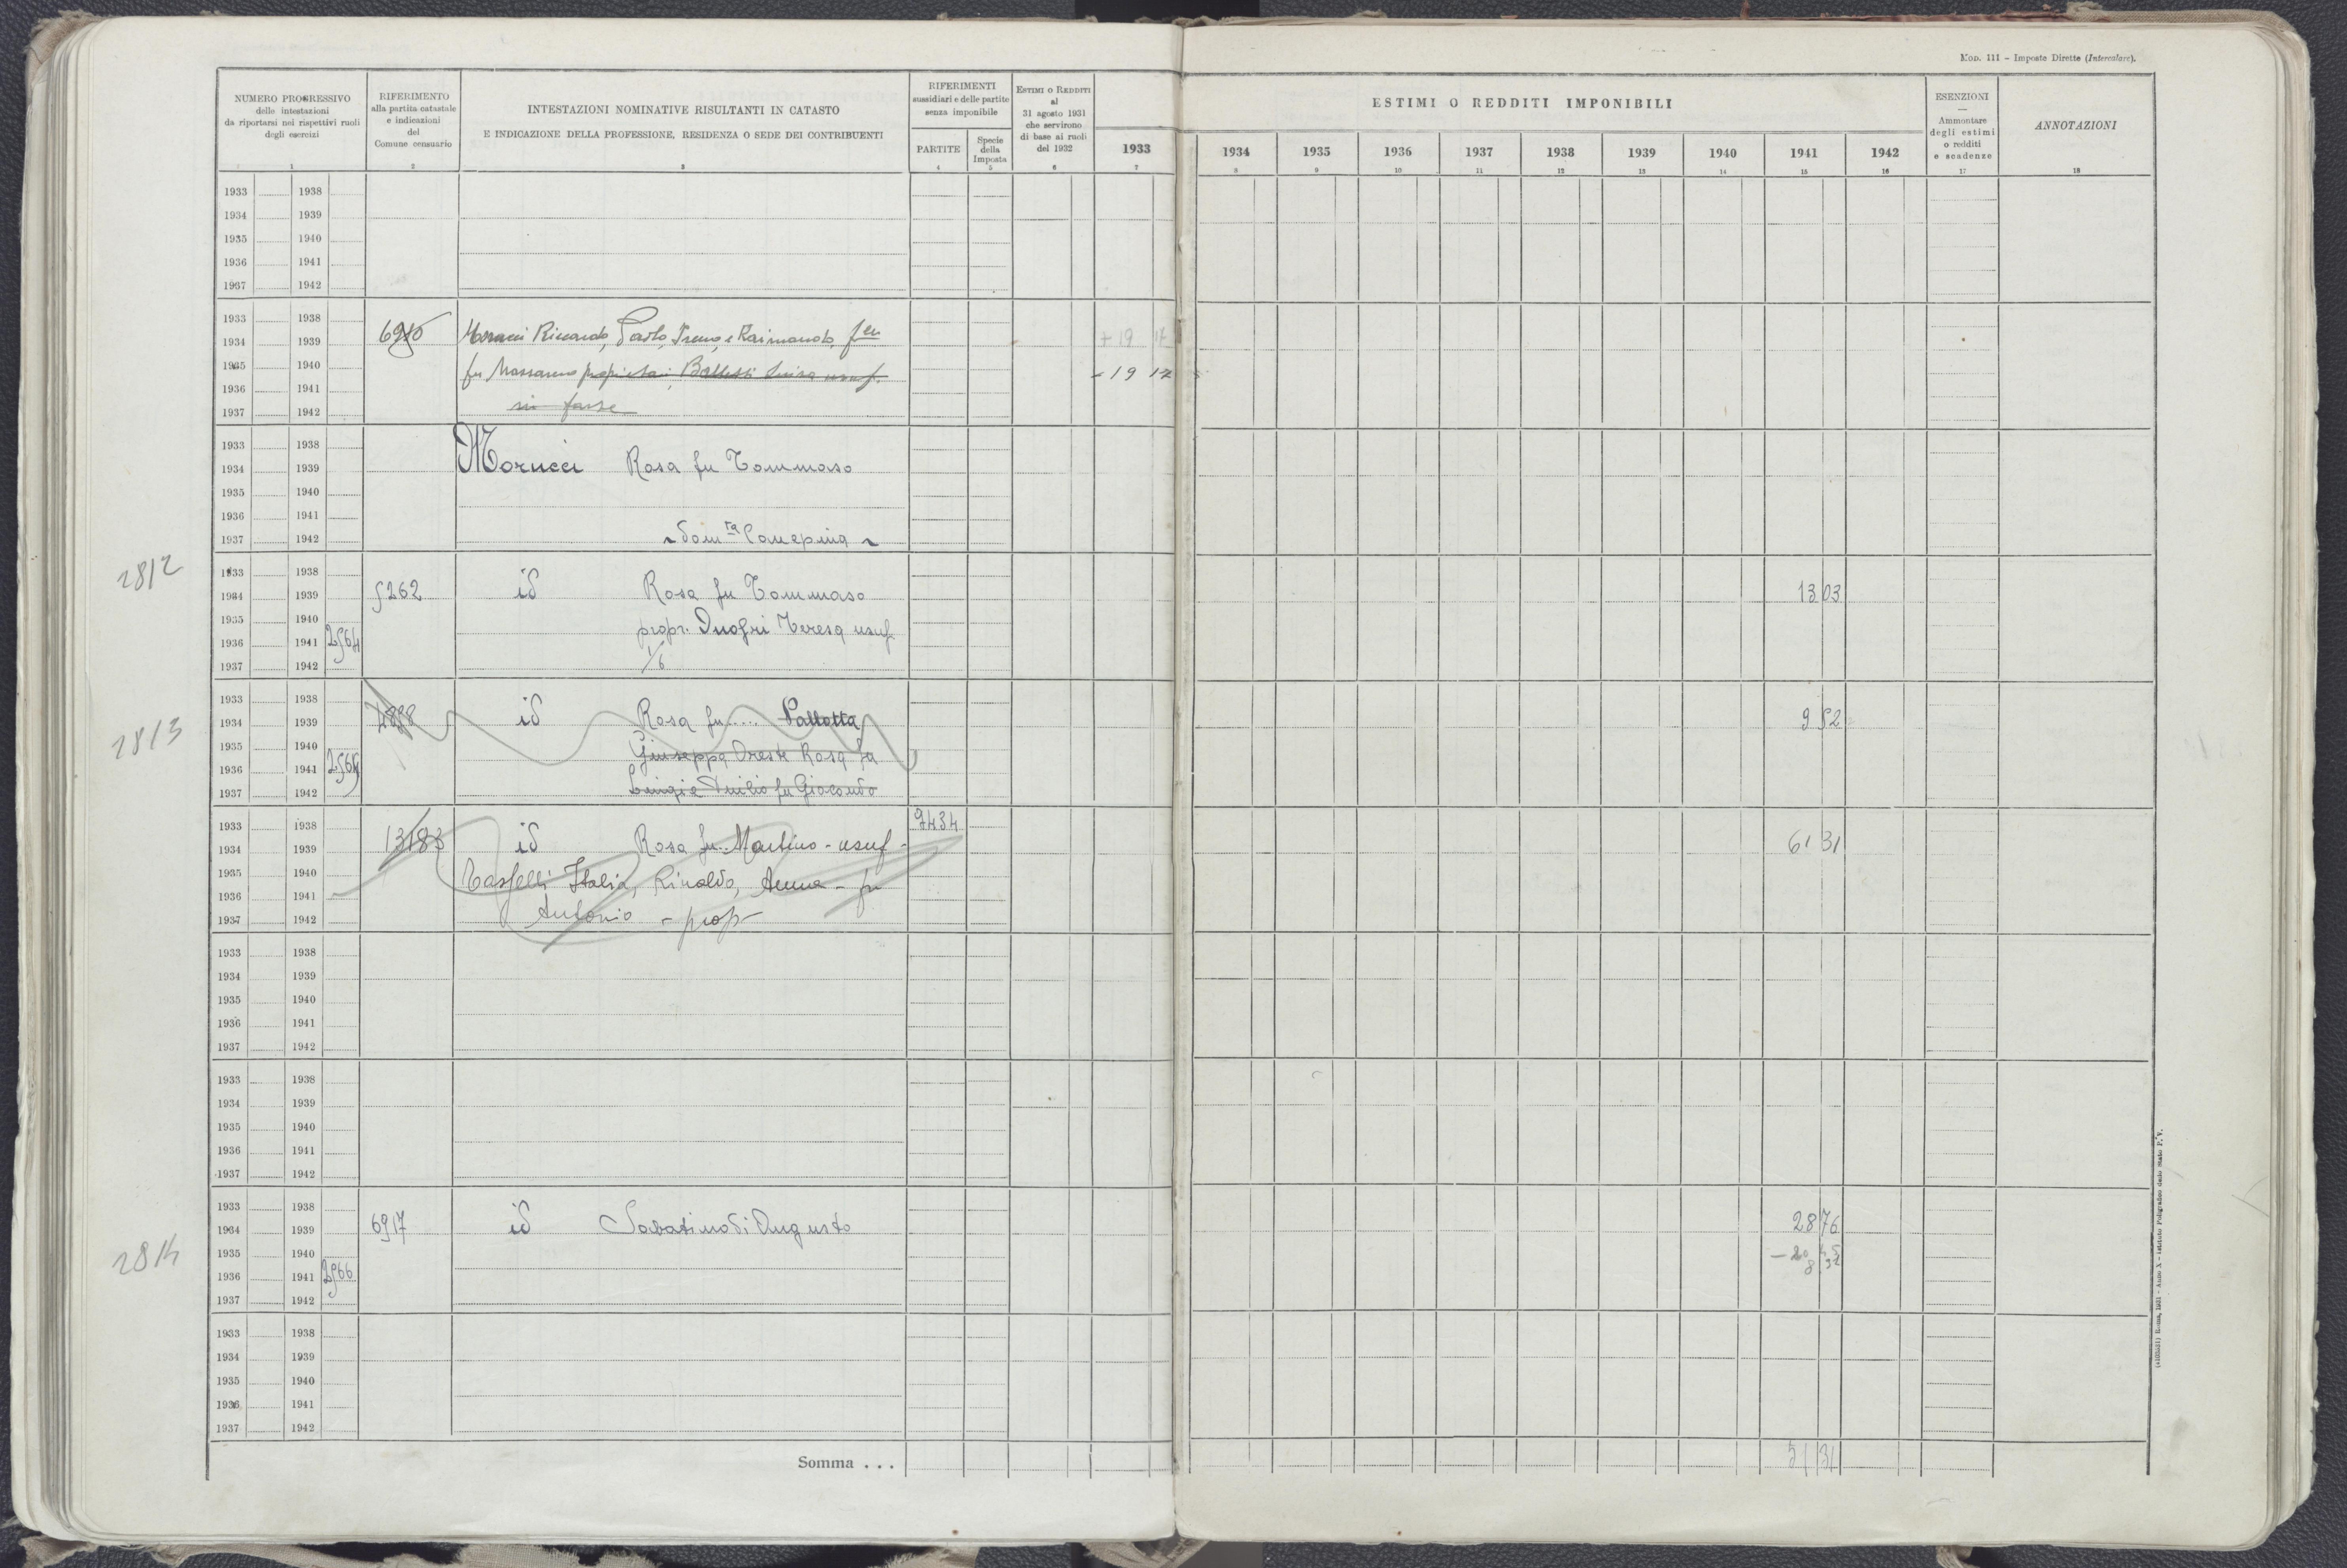 MOD. 111 - Imposte Dirette (Intercalare).
NUMERO PROGRESSIVO
delle intestazioni
da riportarsi nei rispettivi ruoli
degli esercizi
RIFERIMENTO
alla partita catastale
e indicazioni
del
Comune censuario
INTESTAZIONI NOMINATIVE RISULTANTI IN CATASTO
E INDICAZIONE DELLA PROFESSIONE, RESIDENZA O SEDE DEI CONTRIBUENTI
RIFERIMENTI
sussidiari e delle partite
senza imponibile
PARTITE
Specie
della
Imposta
ESTIMI O REDDITI
al
31 agosto 1931
che servirono
di base ai ruoli
del 1932
ESTIMI O REDDITI IMPONIBILI
1933 1934 1935 1936 1937 1938 1939 1940 1941 1942
ESENZIONI
—
Ammontare
degli estimi
o redditi
e scadenze
ANNOTAZIONI
1 2 3 4 5 6 7 8 9 10 11 12 13 14 15 16 17 18
1933 1938
1934 1939
1935 1940
1936 1941
1937 1942
1933 1938
1934 1939 Riccardo, Paolo, e Raimondo fu + 19 17
1935 1940 fu proprietari Luisa usuf. - 19 17
1936 1941
1937 1942 in parte
1933 1938
1934 1939 Morucci Rosa fu Tommaso
1935 1940
1936 1941
1937 1942 dom.ta Canepina
2812
1933 1938
1934 1939 5262 id Rosa fu Tommaso 13 03
1935 1940 propr. Onofri Teresa usuf
1936 1941 2564
1937 1942 1/6
2813
1933 1938
1934 1939 id Rosa fu .... Pallotta 9 52
1935 1940 Giuseppa Oreste Rosa fu
1936 1941 2565
1937 1942 Luigi e Duilio fu Giocondo
1933 1938 9434
1934 1939 13183 id Rosa fu .. Martino - usuf - 61 31
1935 1940 Tasselli Italia, Rinaldo, Anna - fu
1936 1941
1937 1942 Antonio - propr
1933 1938
1934 1939
1935 1940
1936 1941
1937 1942
1933 1938
1934 1939
1935 1940
1936 1941
1937 1942
2814
1933 1938
1934 1939 6917 id Sabatino di Augusto 28 76
1935 1940 - 20 45
1936 1941 2566 8 31
1937 1942
1933 1938
1934 1939
1935 1940
1936 1941
1937 1942
Somma . . . 51 31
Roma, 1931 - Anno X - Istituto Poligrafico dello Stato P. V.